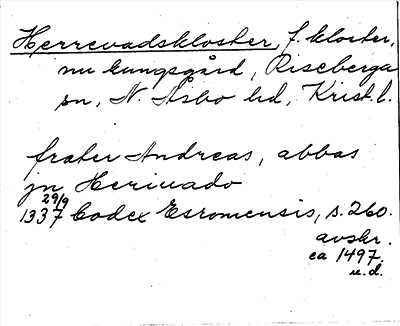 Herrevadskloster, f. kloster,
nu kungsgård, Riseberga
sn, N. Åsbo hd, Krist. l.
frater Andreas, abbas
jn Heriuado
29/9
1337 Codex Esromensis, s. 260.
avskr.
ca 1497.
u.d.